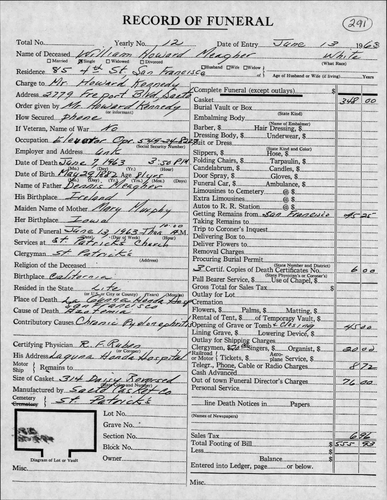 RECORD OF FUNERAL
291
Total No. Yearly No. 12 Date of Entry June 13 1963
Name of Deceased William Howard Meagher White
(What Race)
Married Single Widowed Divorced Husband Wife Widow
Residence 85 4th St., San Francisco Age of Husband or Wife (if living) Years
Charge to Mr Howard Kennedy
Address 2779 Freeport Blvd Sacto
Order given by Mr. Howard Kennedy
How Secured Phone
If Veteran, Name of War No
Occupation Elevator Opr.
(Social Security Number)
Employer and Address
Date of Death June 7, 1963 3:50 P.M.
Date of Birth May 29 1882 Age 81 yr
Name of Father Dennis Meagher
His Birthplace Ireland
Maiden Name of Mother Mary Murphy
Her Birthplace Iowa
Date of Funeral June 13, 1963 Thu 10:00 A.M.
Services at St Patricks Church
Clergyman St Patricks
Religion of the Deceased
Birthplace California
Resided in the State Life
Place of Death Laguna Honda Hosp
San Francisco
Cause of Death Azotemia
Contributory Causes Chronic Pyelonephritis
Certifying Physician R. F. Ruben
His Address Laguna Honda Hospital
Ship Remains to
Size of Casket 314 Davy Removed
Manufactured by Sacto Casket Co
Cemetery St Patrick's
Lot No.
Grave No.
Section No.
Block No.
Owner
Diagram of Lot or Vault
Misc.
Complete Funeral (except outlays) $
Casket 348 00
Burial Vault or Box
(State Kind)
Embalming Body
(Name of Embalmer)
Barber, $ Hair Dressing, $
Dressing Body, $ Underwear, $
Suit or Dress
(State Kind and Color)
Slippers, $ Hose, $
Folding Chairs, $ Tarpaulin, $
Candelabrum, $ Candles, $
Door Spray, $ Gloves, $
Funeral Car, $ Ambulance, $
Limousines to Cemetery @ $
Extra Limousines @ $
Autos to R. R. Station @ $
Getting Remains from San Francisco 45 25
Taking Remains to
Trip to Coroner's Inquest
Delivering Box to
Deliver Flowers to
Removal Charges
Procuring Burial Permit
(State Number and District)
3 Certif. Copies of Death Certificates No. 6 00
Pall Bearer Service, $ Use of Chapel, $
Gross Total for Sales Tax $
Outlay for Lot
Cremation
Flowers, $ Palms, $ Matting, $
Rental of Tent, $ of Temporary Vault, $
Opening of Grave or Tomb & Closing 45 00
Lining Grave, $ Lowering Device, $
Outlay for Shipping Charges
Clergymen, $ Singers, $ Organist, $ 20 00
Railroad or Motor Tickets, $ Aeroplane Service, $
Telegr., Phone, Cable or Radio Charges 8 72
Cash Advanced
Out of town Funeral Director's Charges 76 00
Personal Service
line Death Notices in Papers
(Names of Newspapers)
Sales Tax 6 96
Total Footing of Bill $ 555 93
Less
Balance $
Entered into Ledger, page or below.
Misc.